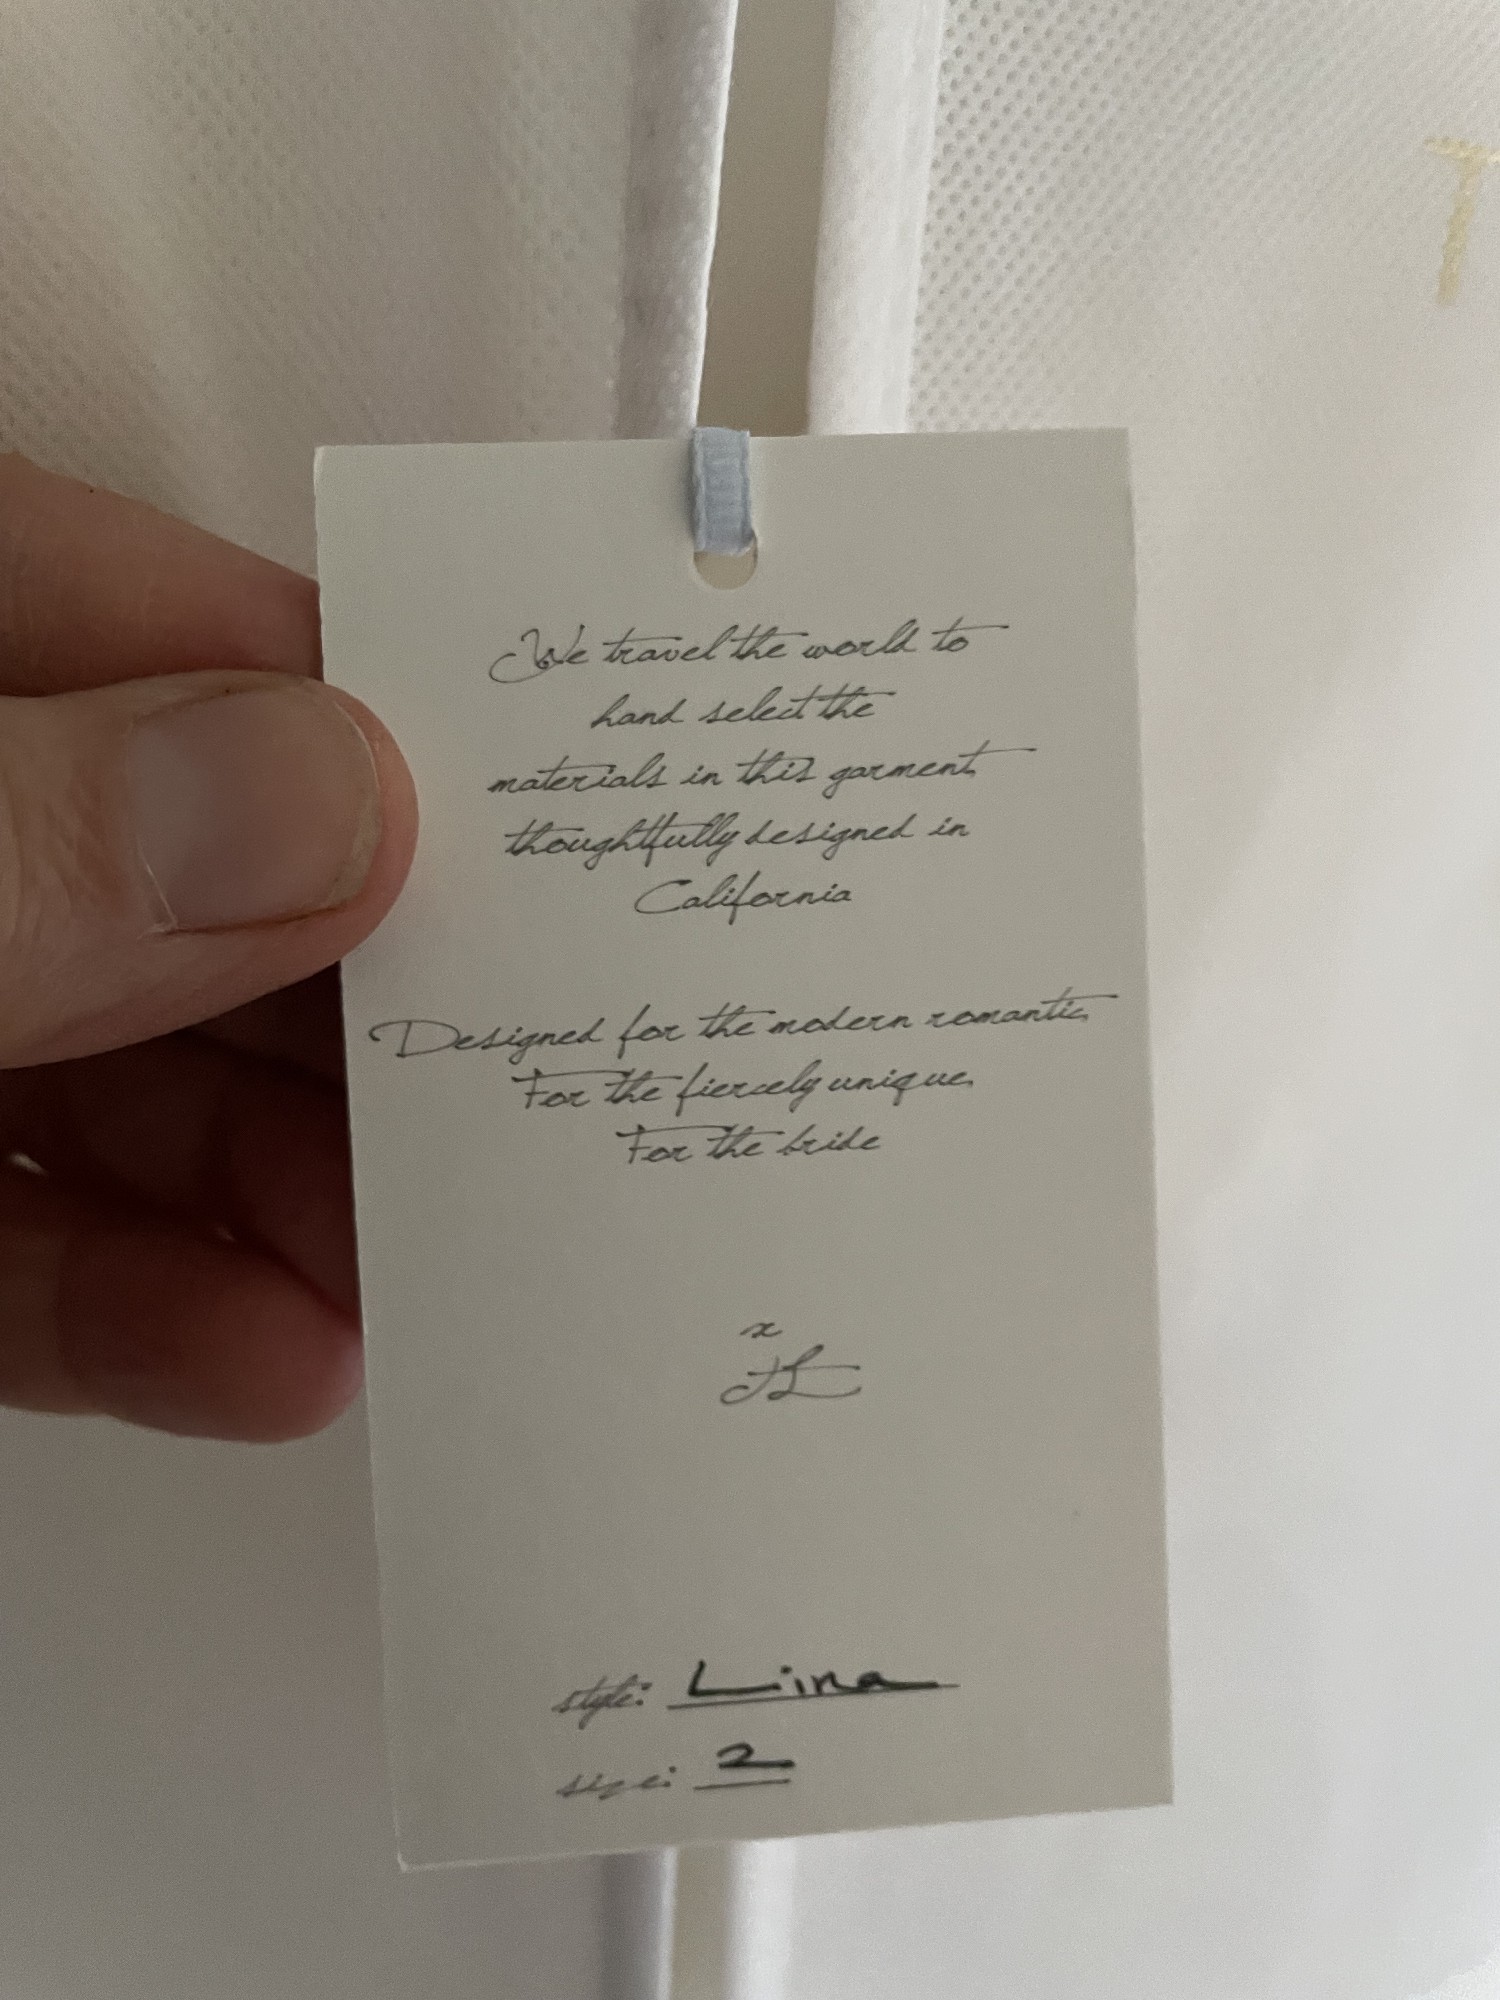 T
We travel the world to
hand select the
materials in this garment,
thoughtfully designed in
California
Designed for the modern romantic,
For the fiercely unique,
For the bride
x
TL
style: Liina
size: 2